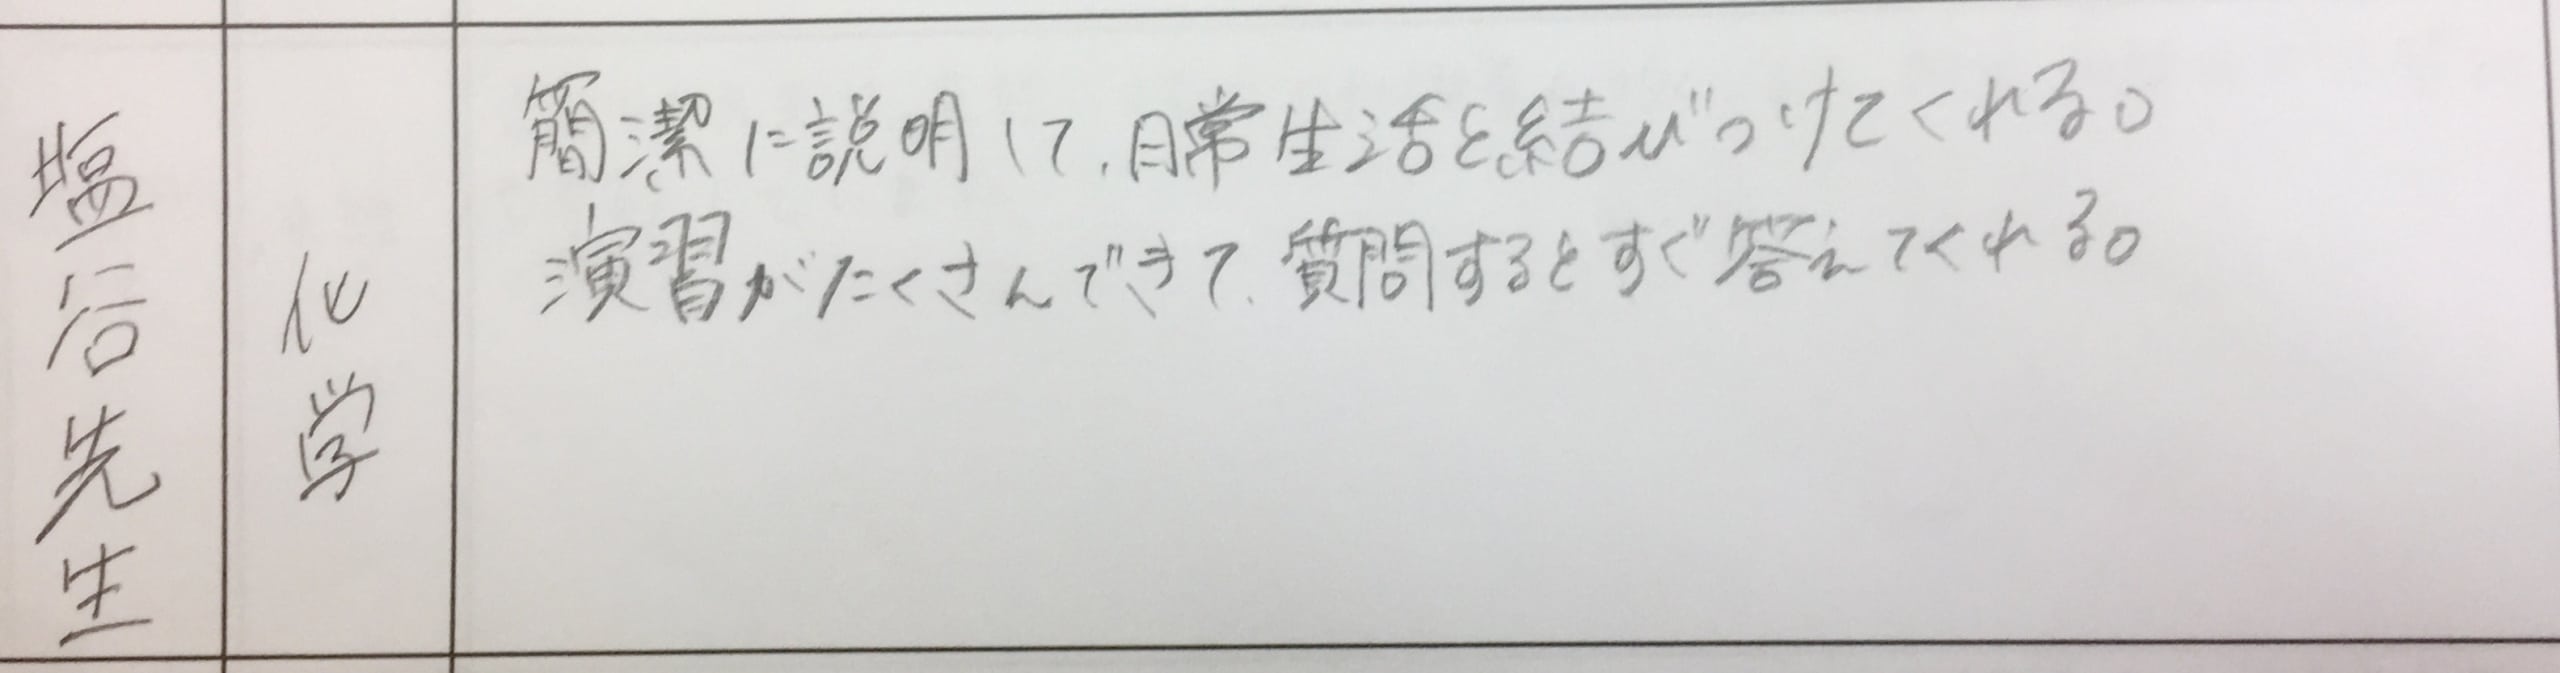 塩谷先生
化学
簡潔に説明して、日常生活と結びつけてくれる。
演習がたくさんできて、質問するとすぐ答えてくれる。